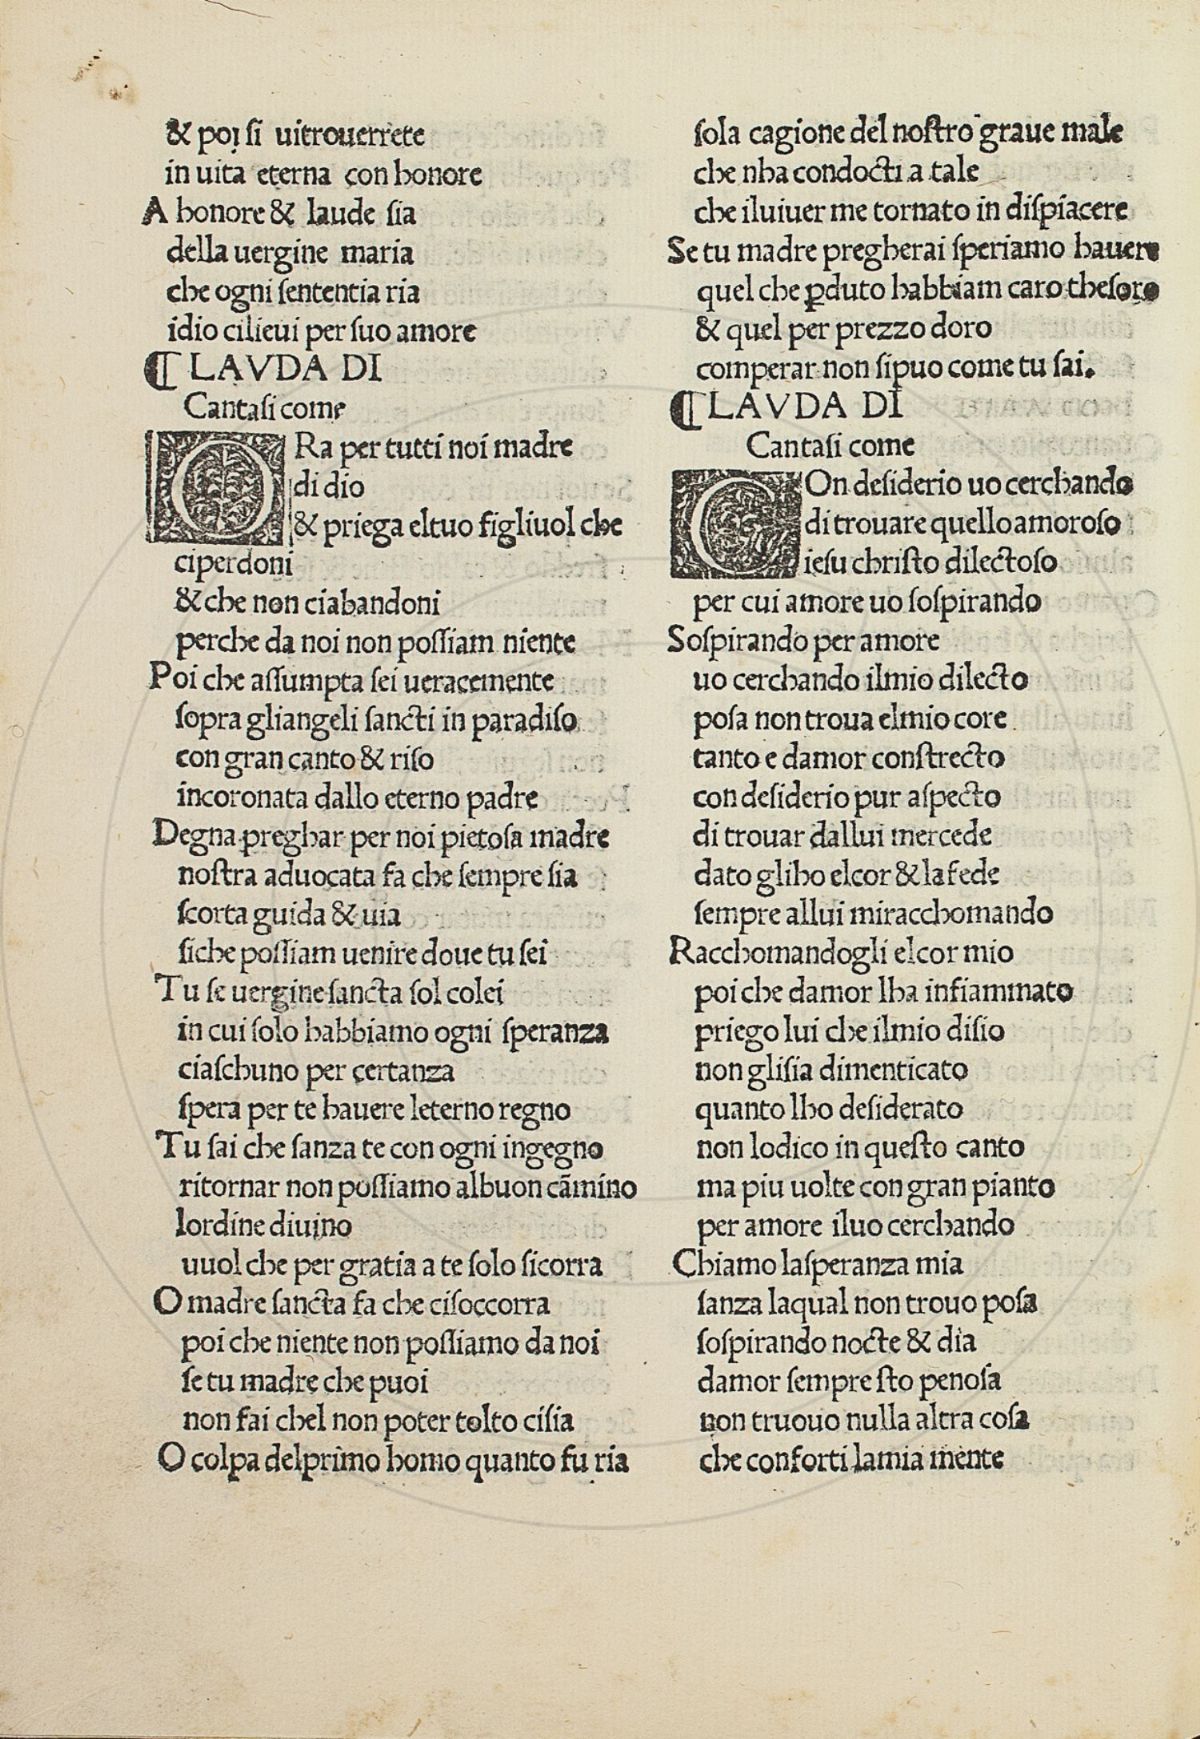 & poi si uitrouerrete
in uita eterna con honore
A honore & laude sia
della uergine maria
che ogni sententia ria
idio cilieui per suo amore
¶ LAVDA DI
Cantasi come
ORa per tutti noi madre
di dio
& priega eltuo figliuol che
ciperdoni
& che non ciabandoni
perche da noi non possiam niente
Poi che assumpta sei ueracemente
sopra gliangeli sancti in paradiso
con gran canto & riso
incoronata dallo eterno padre
Degna preghar per noi pietosa madre
nostra aduocata fa che sempre sia
scorta guida & uia
siche possiam uenire doue tu sei
Tu se uergine sancta sol colei
in cui solo habbiamo ogni speranza
ciaschuno per certanza
spera per te hauere leterno regno
Tu sai che sanza te con ogni ingegno
ritornar non possiamo albuon cãmino
lordine diuino
uuol che per gratia a te solo sicorra
O madre sancta fa che cisoccorra
poi che niente non possiamo da noi
se tu madre che puoi
non fai chel non poter tolto cisia
O colpa delprimo homo quanto fu ria
sola cagione del nostro graue male
che nha condocti a tale
che iluiuer me tornato in dispiacere
Se tu madre pregherai speriamo hauere
quel che ꝑduto habbiam caro thesoro
& quel per prezzo doro
comperar non sipuo come tu sai.
¶ LAVDA DI
Cantasi come
COn desiderio uo cerchando
di trouare quello amoroso
iesu christo dilectoso
per cui amore uo sospirando
Sospirando per amore
uo cerchando ilmio dilecto
posa non troua elmio core
tanto e damor constrecto
con desiderio pur aspecto
di trouar dallui mercede
dato gliho elcor & la fede
sempre allui miracchomando
Racchomandogli elcor mio
poi che damor lha infiammato
priego lui che ilmio disio
non glisia dimenticato
quanto lho desiderato
non lodico in questo canto
ma piu uolte con gran pianto
per amore iluo cerchando
Chiamo lasperanza mia
sanza laqual non trouo posa
sospirando nocte & dia
damor sempre sto penosa
non truouo nulla altra cosa
che conforti lamia mente